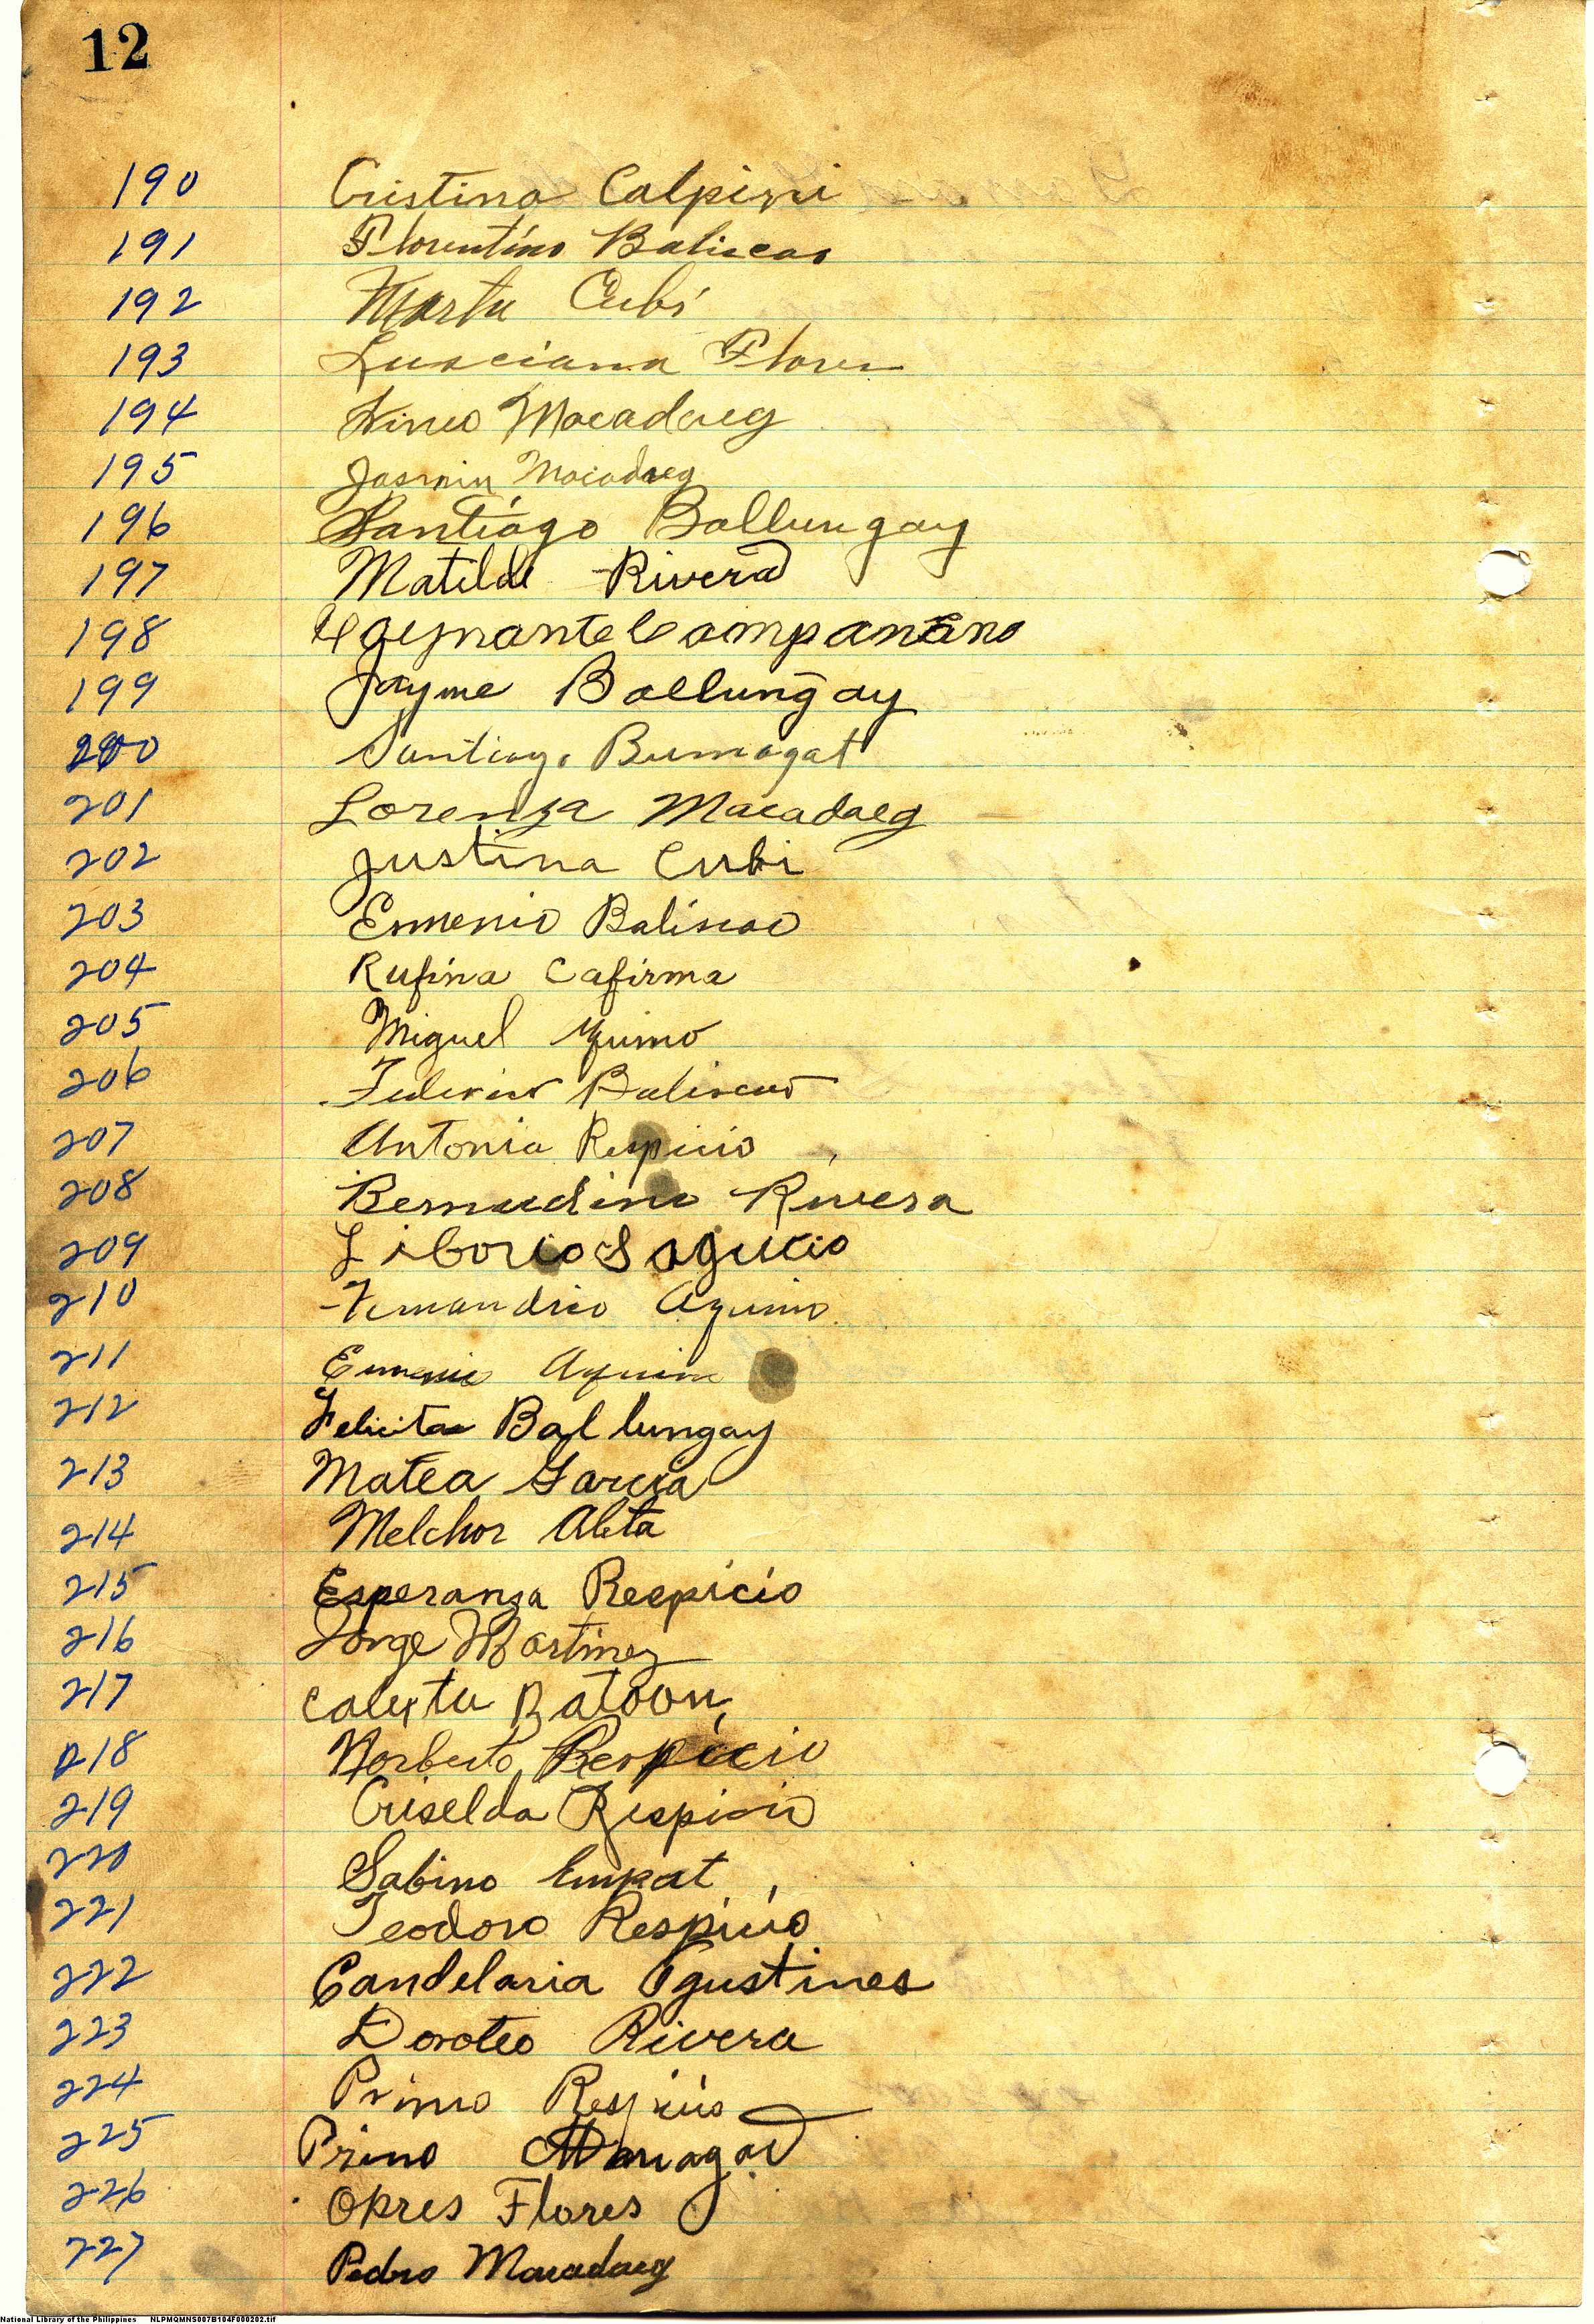 12
190 Cristina Calpini
191 Florentino Baliscao
192 Marta Cubi
193 Lusciana Flores
194 Macadaeg
195 Jasmin Macadaeg
196 Santiago Ballungay
197 Matilde Rivera
198 Campaneno
199 Jayme Ballungay
200 Santiago Bumagat
201 Lorenza Macadaeg
202 Justina Cubi
203 Baliscao
204 Rufina Cafirma
205 Miguel
206 Baliscao
207 Antonia Respicio
208 Bernardino Rivera
209 Liborio Sagucio
210 Aquino
211 Eumenio Aquino
212 Felicita Ballungay
213 Matea Garcia
214 Melchor Abta
215 Esperanza Respicio
216 Jorge Martinez
217 Batoon
218 Norberto Respicio
219 Criselda Respicio
220 Sabino Empat
221 Teodoro Respicio
222 Candelaria Agustines
223 Doroteo Rivera
224 Primo Respicio
225 Primo
226 Opres Flores
227 Pedro Macadaeg
National Library of the Philippines NLPMQMNS007B104F000202.tif